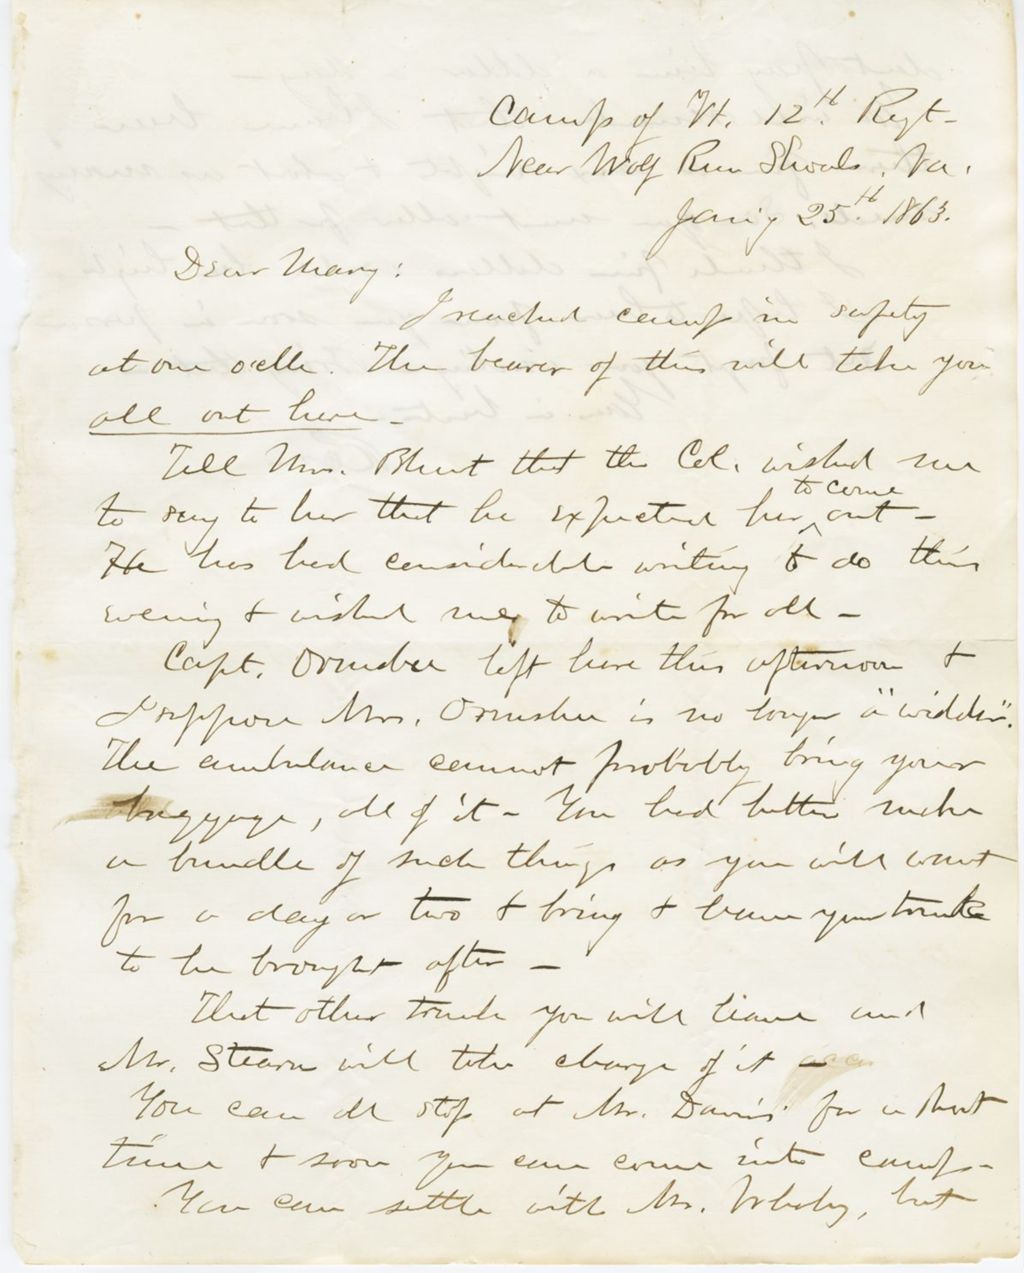 Camp of Vt. 12th Regt-
Near Wolf Run Shoals, Va.
Jan'y 25th 1863.
Dear Mary:
I reached camp in safety
at one o'clk. The bearer of this will take you
all out here -
Tell Mrs. Blunt that the Col. wished me
to say to her that he expected her to come out -
He has had considerable writing to do this
evening & wished me to write for all -
Capt. Ormsbee left here this afternoon &
I suppose Mrs. Ormsbee is no longer a "widder".
The ambulance cannot probably bring your
baggage, all of it - You had better make
a bundle of such things as you will want
for a day or two & bring & leave your trunk
to be brought after -
That other trunk you will leave and
Mr. Stearn will take charge of it -
You can all stop at Mr. Davis' for a short
time & soon you can come into camp -
You can settle with Mr. but